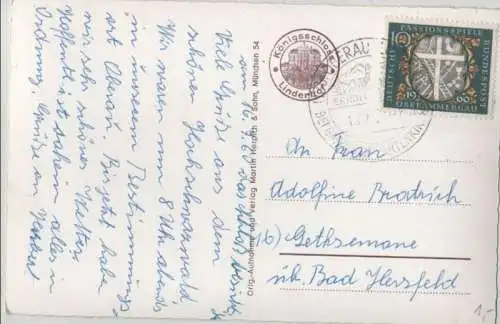 am 16.9.60
Viele Grüße aus dem
schönen Hochschwarzwald,
Wir waren um 8 Uhr abends
in unserem Bestimmungs-
ort Oberau. Bis jetzt habe
wir sehr schönes Wetter.
Hoffentlich ist daheim alles in
Ordnung. Grüße an
Königsschloss
Linderhof
Orig.-Aufnahme und Verlag Martin Herpich & Sohn, München 54
PASSIONSSPIELE
DEUTSCHE
BUNDESPOST
10
1960
OBERAMMERGAU
An Frau
Adolfine
16) Gethsemane
ük. Bad Hersfeld
1,-